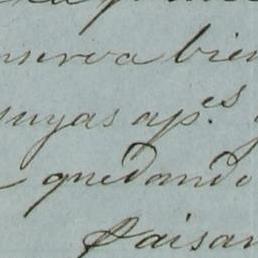 nserva bien
suyas ap.es y
quedando
Paisan